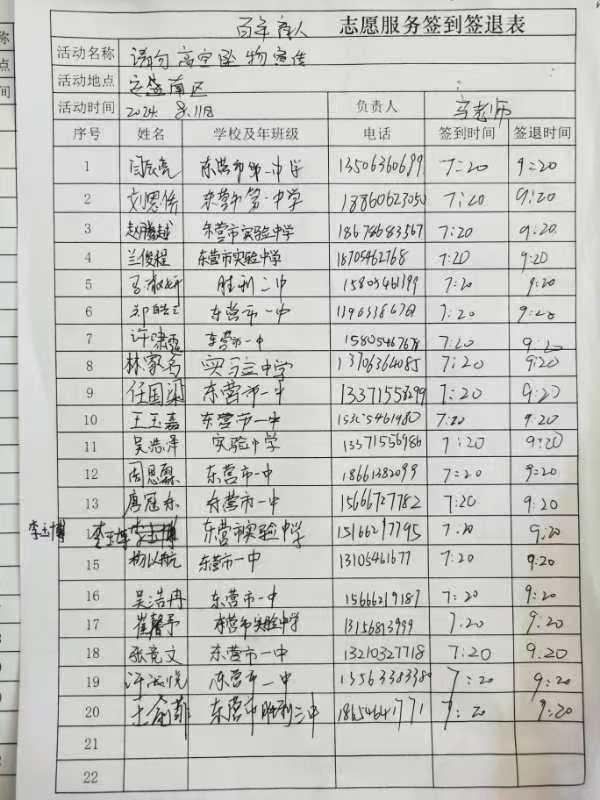 百年育人 志愿服务签到签退表
活动名称 请勿高空坠物宣传
活动地点 定盛南区
活动时间 2024.8.11日 负责人 马老师
序号 姓名 学校及年班级 电话 签到时间 签退时间
1 闫辰亮 东营市第一中学 13506360699 7:20 9:20
2 刘恩侨 东营市第一中学 13860623050 7:20 9:20
3 赵腾越 东营市实验中学 18678683567 7:20 9:20
4 兰俊程 东营市实验中学 18705462768 7:20 9:20
5 胜利二中 15805461399 7:20 9:20
6 郑皓 东营市一中 7:20 9:20
7 许啸 东营市一中 15805467678 7:20 9:20
8 林家名 实验中学 13706364085 7:20 9:20
9 任国梁 东营市一中 13371558299 7:20 9:20
10 王玉嘉 东营市一中 7:20 9:20
11 吴浩泽 实验中学 13371556986 7:20 9:20
12 周恩霖 东营市一中 18661382099 7:20 9:20
13 唐冠 东营市一中 15666727782 7:20 9:20
李玉博 李玉博 东营市实验中学 15166297795 7:20 9:20
15 杨以航 东营市一中 13105461677 7:20 9:20
16 吴浩冉 东营市一中 15666219187 7:20 9:20
17 崔馨予 东营市实验中学 13156813999 7:20 9:20
18 张竞文 东营市一中 13210327718 7:20 9:20
19 许淑悦 东营市一中 13563383380 7:20 9:20
20 王俞菲 东营市胜利二中 18654641771 7:20 9:20
21
22